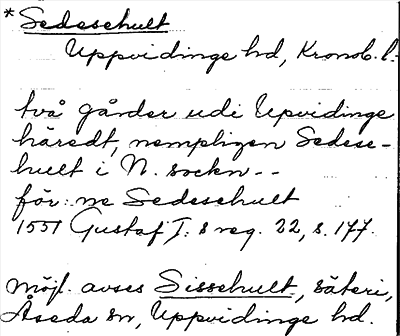 * Sedesehult
Uppvidinge hd, Kronob. l.
två gårder udi Upvidinge
häredt, nempligen Sedese-
hult i N. sockn--
för: ne Sedesehult
1551 Gustaf I:s reg. 22, s. 177.
möjl. avses Sissehult, säteri,
Åseda sn, Uppvidinge hd.